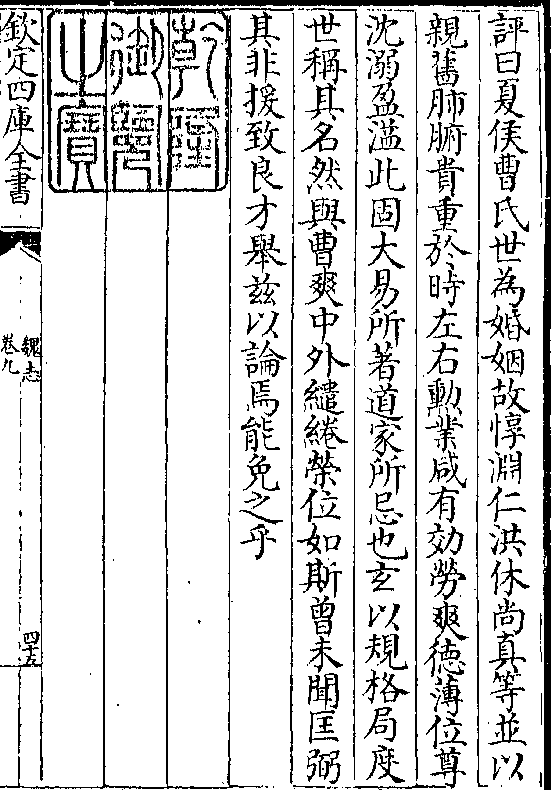 評曰夏侯曹氏世為婚姻故惇淵仁洪休尚真等並以
親舊肺腑貴重於時左右勲業咸有効勞爽徳薄位尊
沈溺盈溢此固大易所著道家所忌也玄以規格局度
世稱其名然與曹爽中外繾綣榮位如斯曾未聞匡弼
其非援致良才舉兹以論焉能免之乎
乾隆
御覽
之寶
欽定四庫全書
魏志
卷九
四十五